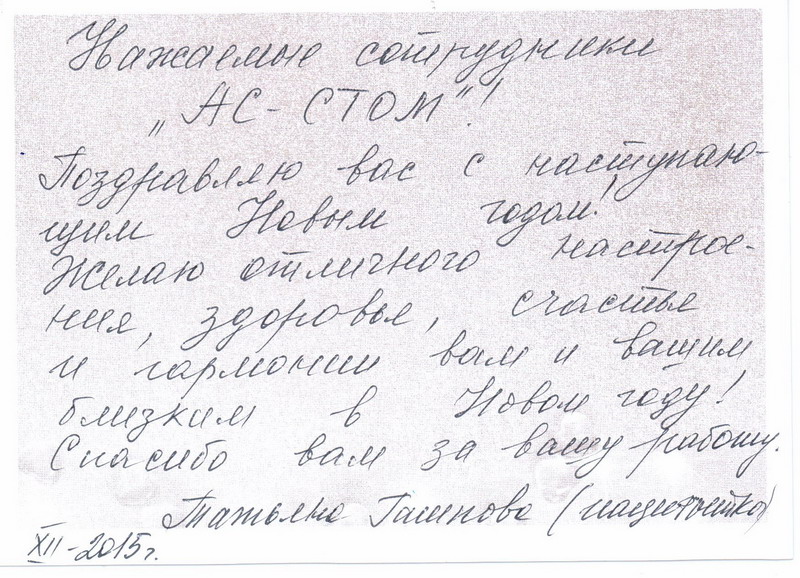 Уважаемые сотрудники
„АС-СТОМ"!
Поздравляю вас с наступаю-
щим Новым годом!
Желаю отличного настрое-
ния, здоровья, счастья
и гармонии вам и вашим
близким в Новом году!
Спасибо вам за вашу работу.
Татьяна (пациентка)
XII-2015г.